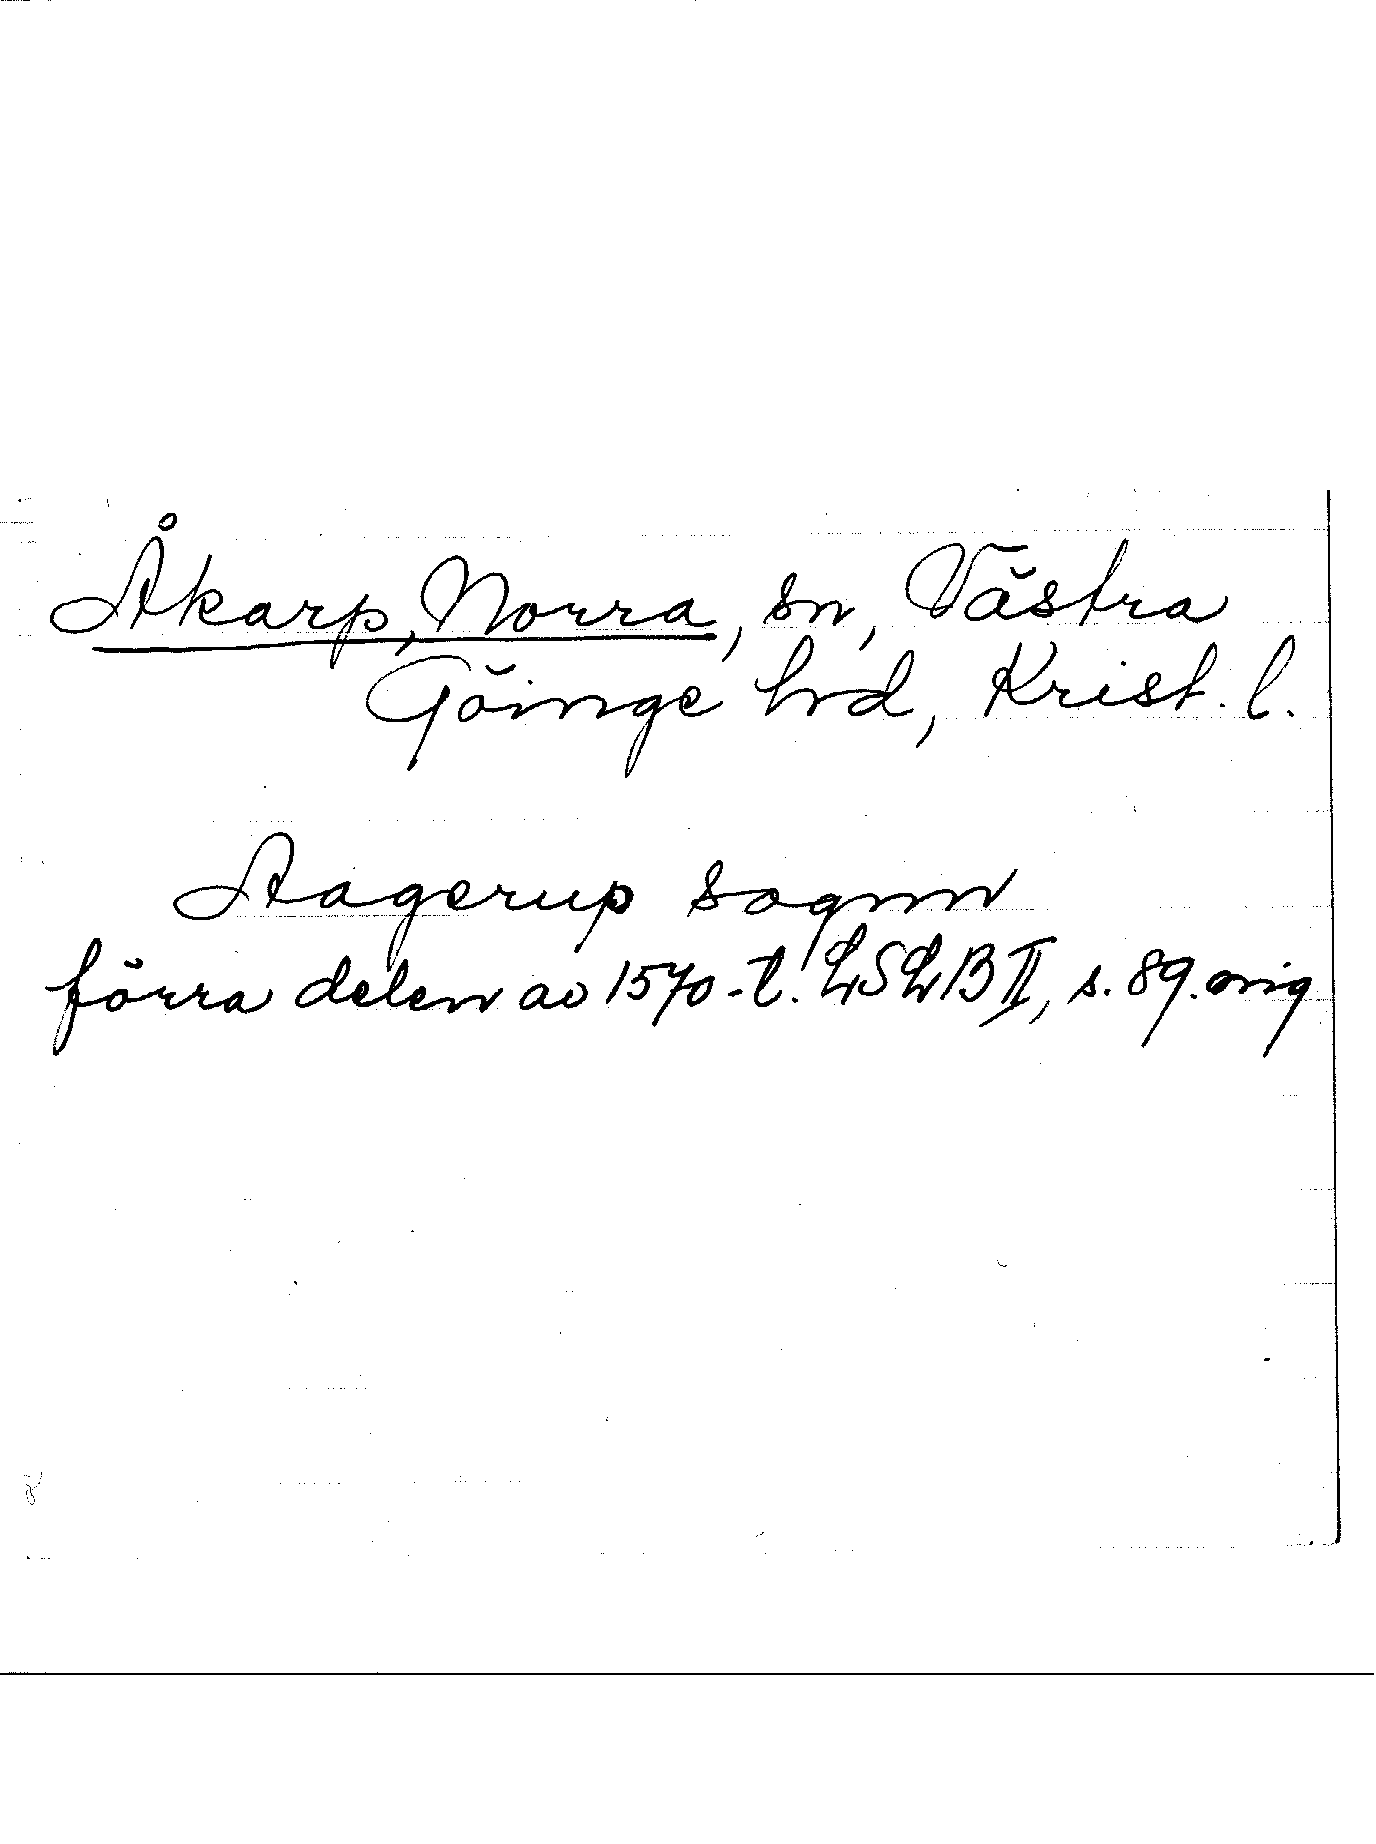 Åkarp, Norra, sn, Västra
Göinge hd, Krist. l.
Aagerup sognn
förra delen av 1570-t. LSLB II, s. 89. orig